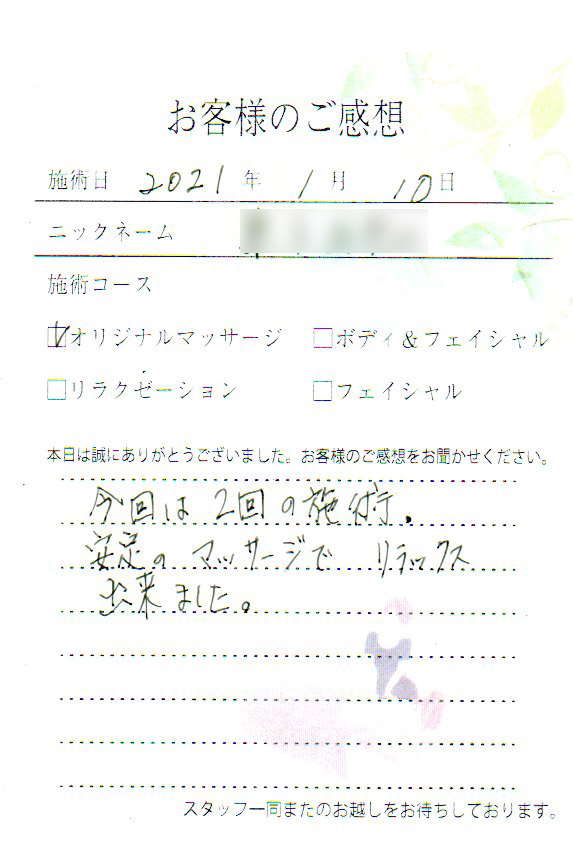 お客様のご感想
施術日 2021年 1月 10日
ニックネーム
施術コース
オリジナルマッサージ ボディ&フェイシャル
リラクゼーション フェイシャル
本日は誠にありがとうございました。お客様のご感想をお聞かせください。
今回は2回の施術。
安定のマッサージで リラックス
出来ました。
スタッフ一同またのお越しをお待ちしております。